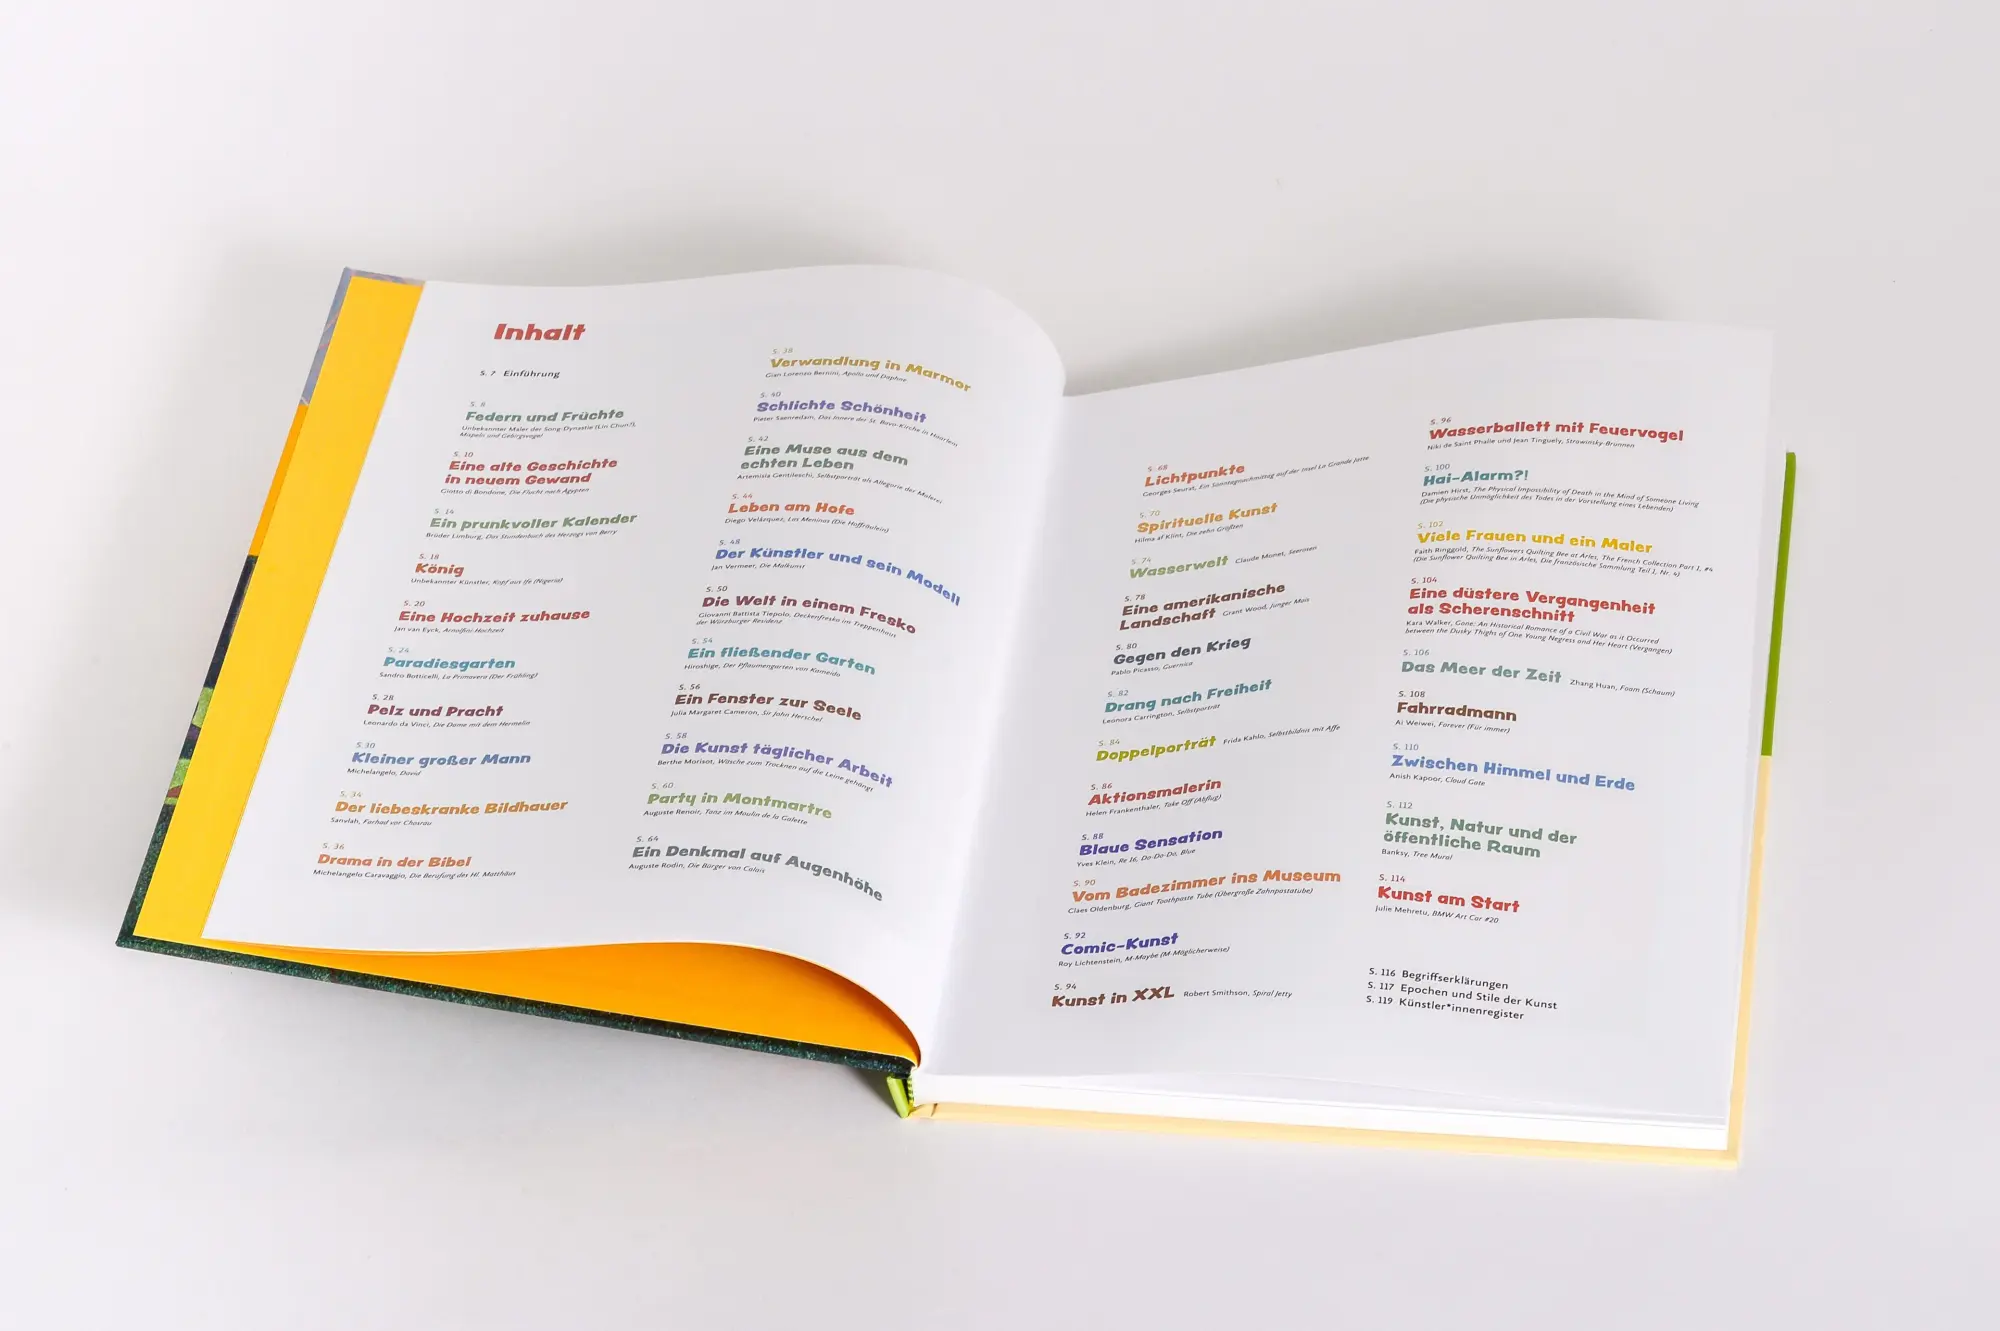 Inhalt
S. 7 Einführung
S. 8
Federn und Früchte
Unbekannter Maler der Song-Dynastie (Lin Chun?),
Mispeln und Gebirgsvogel
S. 10
Eine alte Geschichte
in neuem Gewand
Giotto di Bondone, Die Flucht nach Ägypten
S. 14
Ein prunkvoller Kalender
Brüder Limburg, Das Stundenbuch des Herzogs von Berry
S. 18
König
Unbekannter Künstler, Kopf aus Ife (Nigeria)
S. 20
Eine Hochzeit zuhause
Jan van Eyck, Arnolfini-Hochzeit
S. 24
Paradiesgarten
Sandro Botticelli, La Primavera (Der Frühling)
S. 28
Pelz und Pracht
Leonardo da Vinci, Die Dame mit dem Hermelin
S. 30
Kleiner großer Mann
Michelangelo, David
S. 34
Der liebeskranke Bildhauer
Sanvlah, Farhad vor Chosrau
S. 36
Drama in der Bibel
Michelangelo Caravaggio, Die Berufung des Hl. Matthäus
S. 38
Verwandlung in Marmor
Gian Lorenzo Bernini, Apollo und Daphne
S. 40
Schlichte Schönheit
Pieter Saenredam, Das Innere der St. Bavo-Kirche in Haarlem
S. 42
Eine Muse aus dem
echten Leben
Artemisia Gentileschi, Selbstporträt als Allegorie der Malerei
S. 44
Leben am Hofe
Diego Velázquez, Las Meninas (Die Hoffräulein)
S. 48
Der Künstler und sein Modell
Jan Vermeer, Die Malkunst
S. 50
Die Welt in einem Fresko
Giovanni Battista Tiepolo, Deckenfresko im Treppenhaus
der Würzburger Residenz
S. 54
Ein fließender Garten
Hiroshige, Der Pflaumengarten von Kameido
S. 56
Ein Fenster zur Seele
Julia Margaret Cameron, Sir John Herschel
S. 58
Die Kunst täglicher Arbeit
Berthe Morisot, Wäsche zum Trocknen auf die Leine gehängt
S. 60
Party in Montmartre
Auguste Renoir, Tanz im Moulin de la Galette
S. 64
Ein Denkmal auf Augenhöhe
Auguste Rodin, Die Bürger von Calais
S. 68
Lichtpunkte
Georges Seurat, Ein Sonntagnachmittag auf der Insel La Grande Jatte
S. 70
Spirituelle Kunst
Hilma af Klint, Die zehn Größten
S. 74
Wasserwelt Claude Monet, Seerosen
S. 78
Eine amerikanische
Landschaft Grant Wood, Junger Mais
S. 80
Gegen den Krieg
Pablo Picasso, Guernica
S. 82
Drang nach Freiheit
Leonora Carrington, Selbstporträt
S. 84
Doppelporträt Frida Kahlo, Selbstbildnis mit Affe
S. 86
Aktionsmalerin
Helen Frankenthaler, Take Off (Abflug)
S. 88
Blaue Sensation
Yves Klein, Re 16, Do-Do-Do, Blue
S. 90
Vom Badezimmer ins Museum
Claes Oldenburg, Giant Toothpaste Tube (Übergroße Zahnpastatube)
S. 92
Comic-Kunst
Roy Lichtenstein, M-Maybe (M-Möglicherweise)
S. 94
Kunst in XXL Robert Smithson, Spiral Jetty
S. 96
Wasserballett mit Feuervogel
Niki de Saint Phalle und Jean Tinguely, Strawinsky-Brunnen
S. 100
Hai-Alarm?!
Damien Hirst, The Physical Impossibility of Death in the Mind of Someone Living
(Die physische Unmöglichkeit des Todes in der Vorstellung eines Lebenden)
S. 102
Viele Frauen und ein Maler
Faith Ringgold, The Sunflowers Quilting Bee at Arles, The French Collection Part 1, #4
(Die Sunflower Quilting Bee in Arles, Die französische Sammlung Teil 1, Nr. 4)
S. 104
Eine düstere Vergangenheit
als Scherenschnitt
Kara Walker, Gone: An Historical Romance of a Civil War as it Occurred
between the Dusky Thighs of One Young Negress and Her Heart (Vergangen)
S. 106
Das Meer der Zeit Zhang Huan, Foam (Schaum)
S. 108
Fahrradmann
Ai Weiwei, Forever (Für immer)
S. 110
Zwischen Himmel und Erde
Anish Kapoor, Cloud Gate
S. 112
Kunst, Natur und der
öffentliche Raum
Banksy, Tree Mural
S. 114
Kunst am Start
Julie Mehretu, BMW Art Car #20
S. 116 Begriffserklärungen
S. 117 Epochen und Stile der Kunst
S. 119 Künstler*innenregister